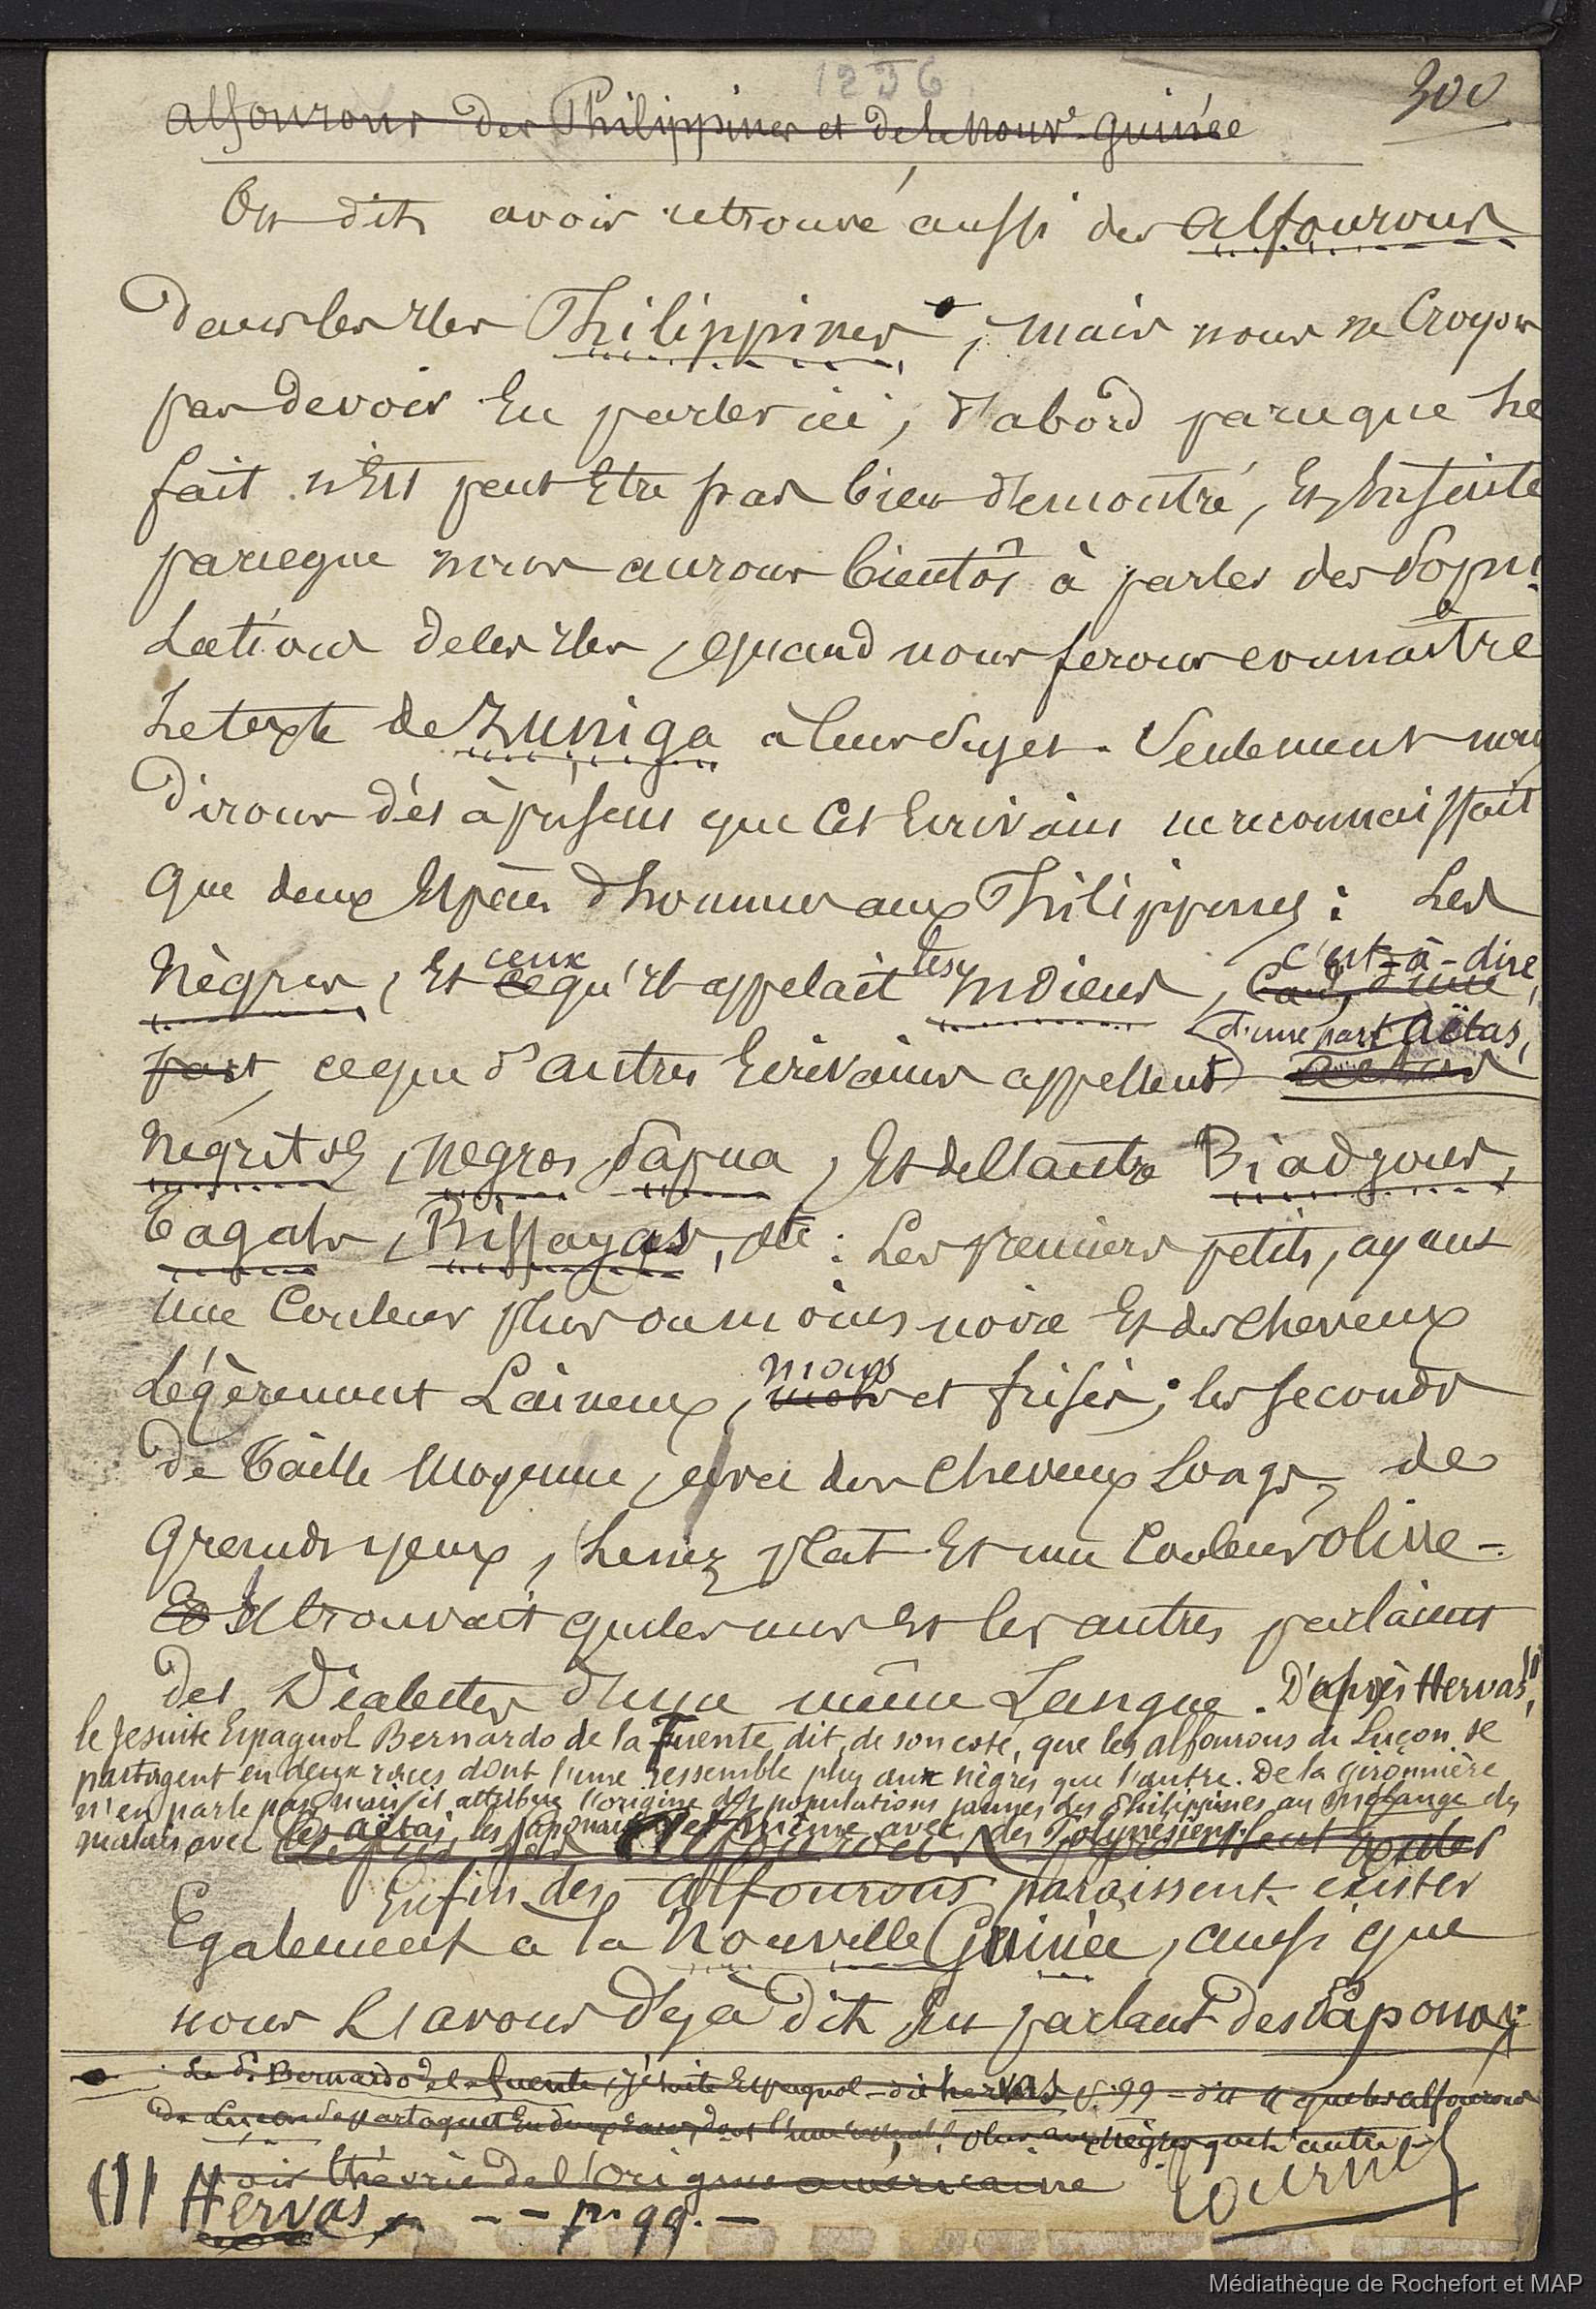 1236
300
alfourous des Philippines et de la nouv.e guinée
On dit avoir retrouvé aussi des alfourous
dans les Iles Philippines, mais nous ne Croyons
pas devoir En parler ici, d'abord parceque Le
fait n'Est peut Etre pas bien démontré, Et Ensuite
parceque nous aurons bientôt à parler des Popu-
Lations de ces Iles, quand nous ferons connaître
Le texte de Zuniga à leur Sujet. Seulement nous
Dirons dès à présent que cet Ecrivain ne reconnaissait
Que deux Espèces d'hommes aux Philippines : Les
Nègres, Et ce ceux qu'il appelait les Indiens, c'est-à-dire,
d'une part
part, ce que d'autres Ecrivains appellent aetas Aëtas,
Négritos, negros, Papua, Et de l'autre Biadjous,
Tagals, Bissayas, etc : Les premiers petits, ayant
une Couleur plus ou moins noire Et des cheveux
Légèrement Laineux, mous et frisés; les seconds
de Taille Moyenne, avec des cheveux Longs, de
Grands yeux, Le nez plat Et une Couleur olive.
Et Il trouvait que les uns Et les autres parlaient
Des Dialectes d'une même Langue. D'après Hervas,
le Jesuite Espagnol Bernardo de la Fuente, dit, de son coté, que les alfourous de Luçon se
partagent en deux races dont l'une ressemble plus aux nègres que l'autre. De la Gironnière
n'en parle pas, mais il attribue l'origine des populations jaunes des Philippines au mélange des
malais avec les aëtas, les Japonais et même avec des Polynésiens.
Enfin des alfourous paraissent exister
Egalement à la Nouvelle Guinée, ainsi que
nous L'avons déjà dit En parlant des Papous.
Le P. Bernardo de la Fuente, Jésuite Espagnol - dit hervas p. 99 - dit que les alfourous
de Luçon se partagent En deux races, dont l'une ressemble plus aux nègres que L'autre
Voir théorie de l'origine américaine
Tournez
(1) Hervas, - - p. 99. -
Médiathèque de Rochefort et MAP